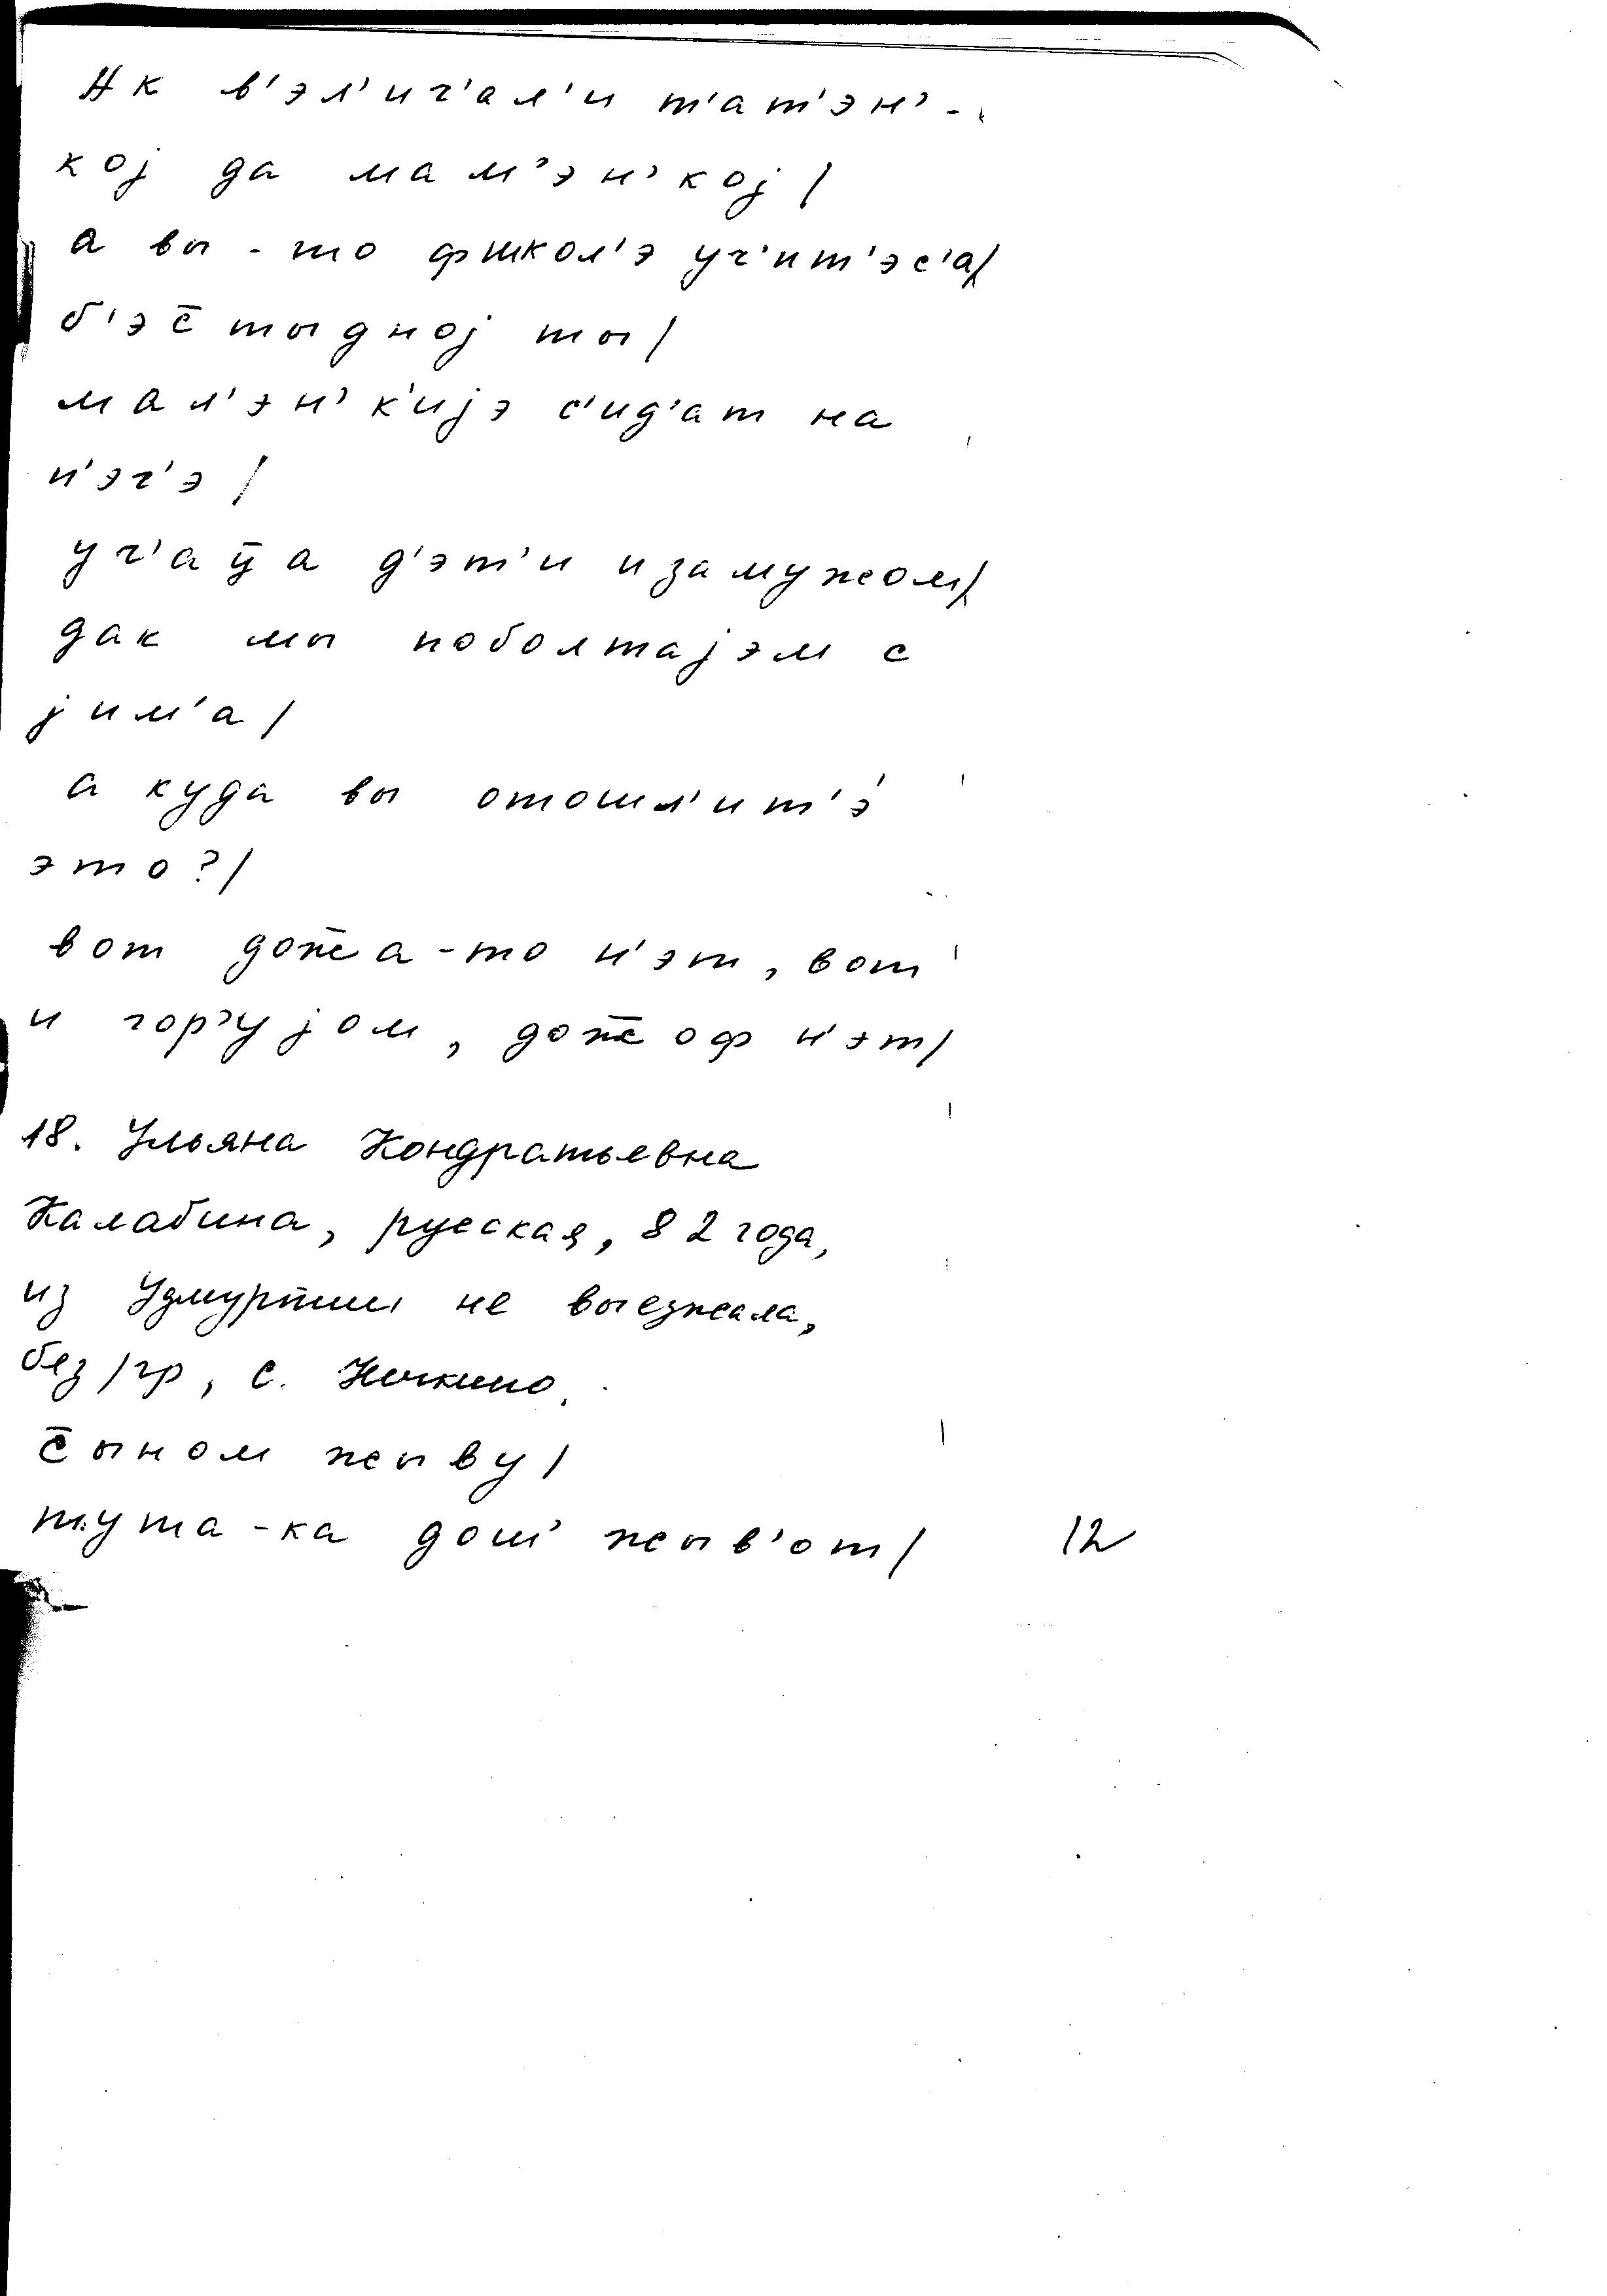 Ак в'эл'ич'ал'и т'ат'эн'-
кој да мам'эн'кој/
а вы-то фшкол'э уч'ит'эс'а/
б'эс̄тыдној ты/
мал'эн'к'ијэ с'ид'ат на
п'эч'э/
уч'ац̄а д'эт'и и замужом/
дак мы поболтајэм с
јим'а/
а куда вы отошл'ит'э
это?/
вот дож̄а-то н'эт, вот
и гор'ујом, дож̄оф н'эт/
18. Ульяна Кондратьевна
Калабина, русская, 82 года,
из Удмуртии не выезжала,
без/гр, с. Нечкино.
с̄ыном жыву/
тута-ка дош' жыв'от/
12